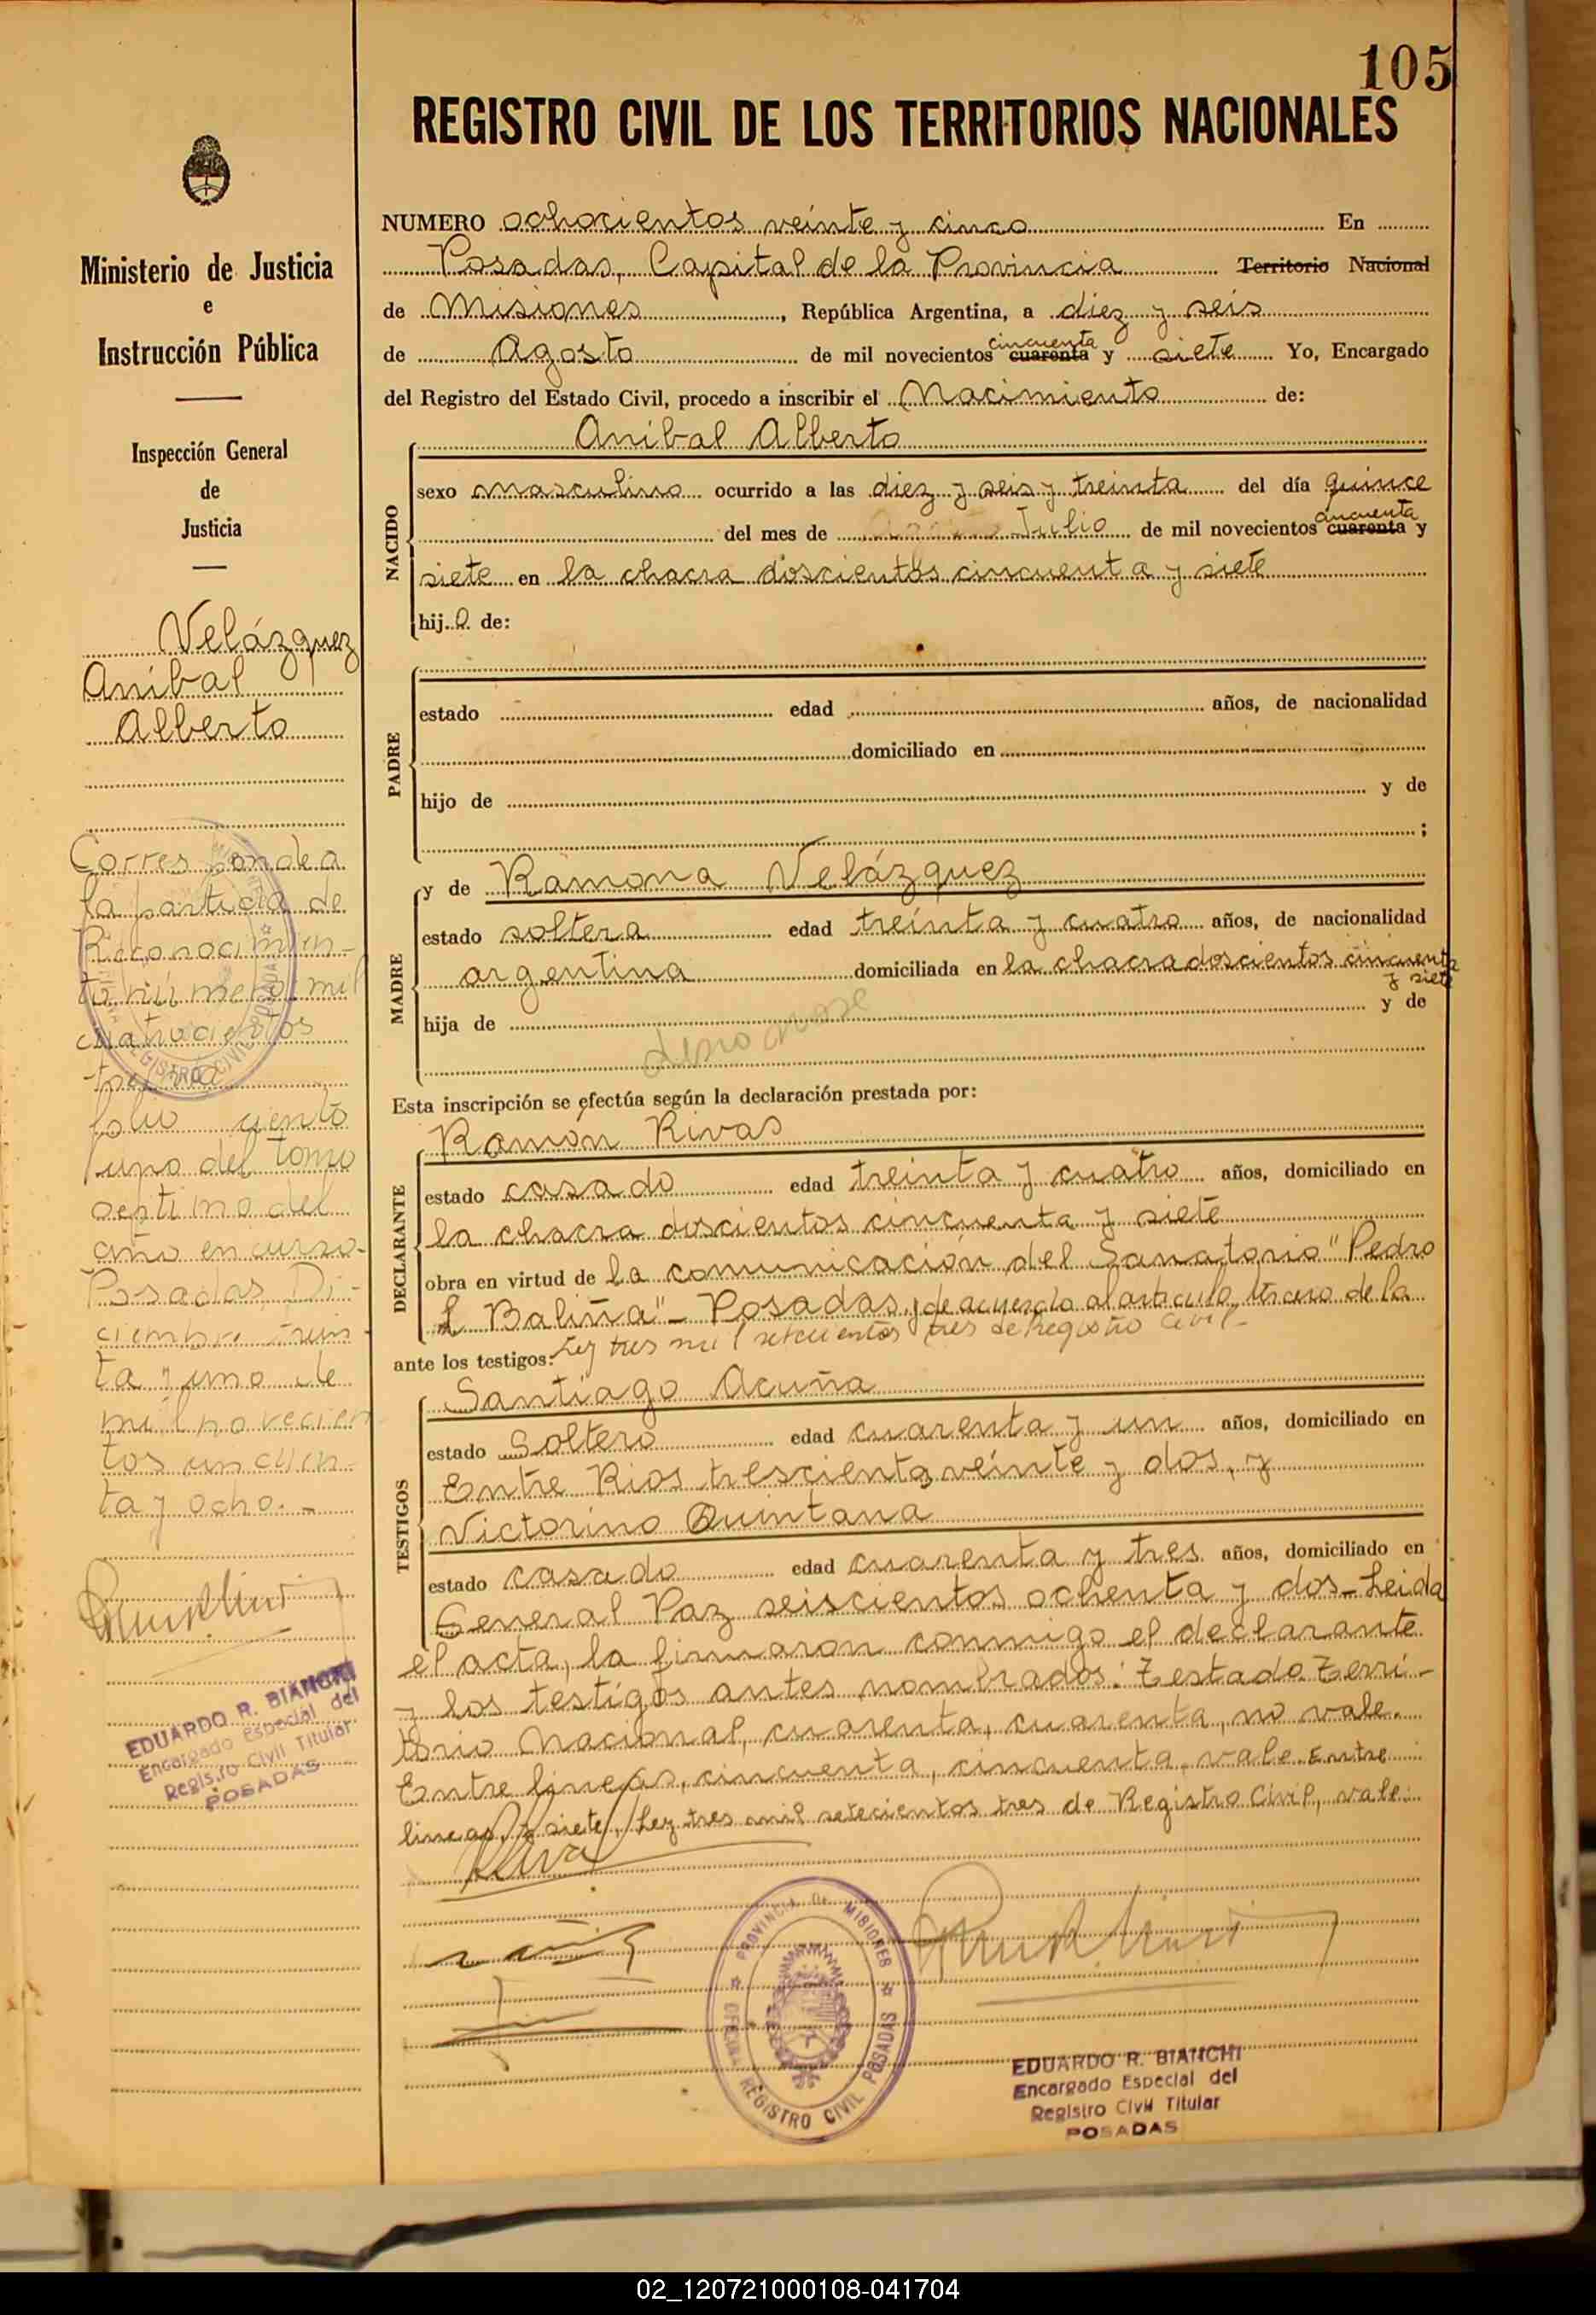 105
REGISTRO CIVIL DE LOS TERRITORIOS NACIONALES
Ministerio de Justicia
e
Instrucción Pública
Inspección General
de
Justicia
Velázquez
Aníbal
Alberto
Corresponde a
la partida de
Reconocimien-
to número mil
cuatrocientos
folio ciento
uno del tomo
septimo del
año en curso-
Posadas, Di-
ciembre trein-
ta y uno de
mil novecien
tos cincuen-
ta y ocho.-
EDUARDO R. BIANCHI
Encargado Especial del
Registro Civil Titular
POSADAS
NUMERO ochocientos veinte y cinco En
Posadas, Capital de la Provincia Territorio Nacional
de Misiones, República Argentina, a diez y seis
de Agosto de mil novecientos cincuenta cuarenta y siete Yo, Encargado
del Registro del Estado Civil, procedo a inscribir el Nacimiento de:
NACIDO
Aníbal Alberto
sexo masculino ocurrido a las diez y seis y treinta del día quince
del mes de Julio de mil novecientos cincuenta cuarenta y
siete en la chacra doscientos cincuenta y siete
hijo de:
PADRE
estado edad años, de nacionalidad
domiciliado en
hijo de y de
;
MADRE
y de Ramona Velázquez
estado soltera edad treinta y cuatro años, de nacionalidad
argentina domiciliada en la chacra doscientos cincuenta
y siete
hija de y de
Esta inscripción se efectúa según la declaración prestada por:
DECLARANTE
Ramón Rivas
estado casado edad treinta y cuatro años, domiciliado en
la chacra doscientos cincuenta y siete
obra en virtud de la comunicación del Sanatorio "Pedro
L Baliña"- Posadas, de acuerdo al articulo tercero de la
ante los testigos: Ley tres mil setecientos tres de Registro Civil-
TESTIGOS
Santiago Acuña
estado Soltero edad cuarenta y un años, domiciliado en
Entre Rios trescientos veinte y dos, y
Victorino Quintana
estado casado edad cuarenta y tres años, domiciliado en
General Paz seiscientos ochenta y dos- Leida
el acta, la firmaron conmigo el declarante
y los testigos antes nombrados: Testado Terri-
torio Nacional, cuarenta, cuarenta, no vale.
Entre lineas, cincuenta, cincuenta, vale. Entre
lineas, y siete, Ley tres mil setecientos tres de Registro Civil, vale.
Rivas
PROVINCIA DE MISIONES
OFICINA REGISTRO CIVIL POSADAS
EDUARDO R. BIANCHI
Encargado Especial del
Registro Civil Titular
POSADAS
02_120721000108-041704